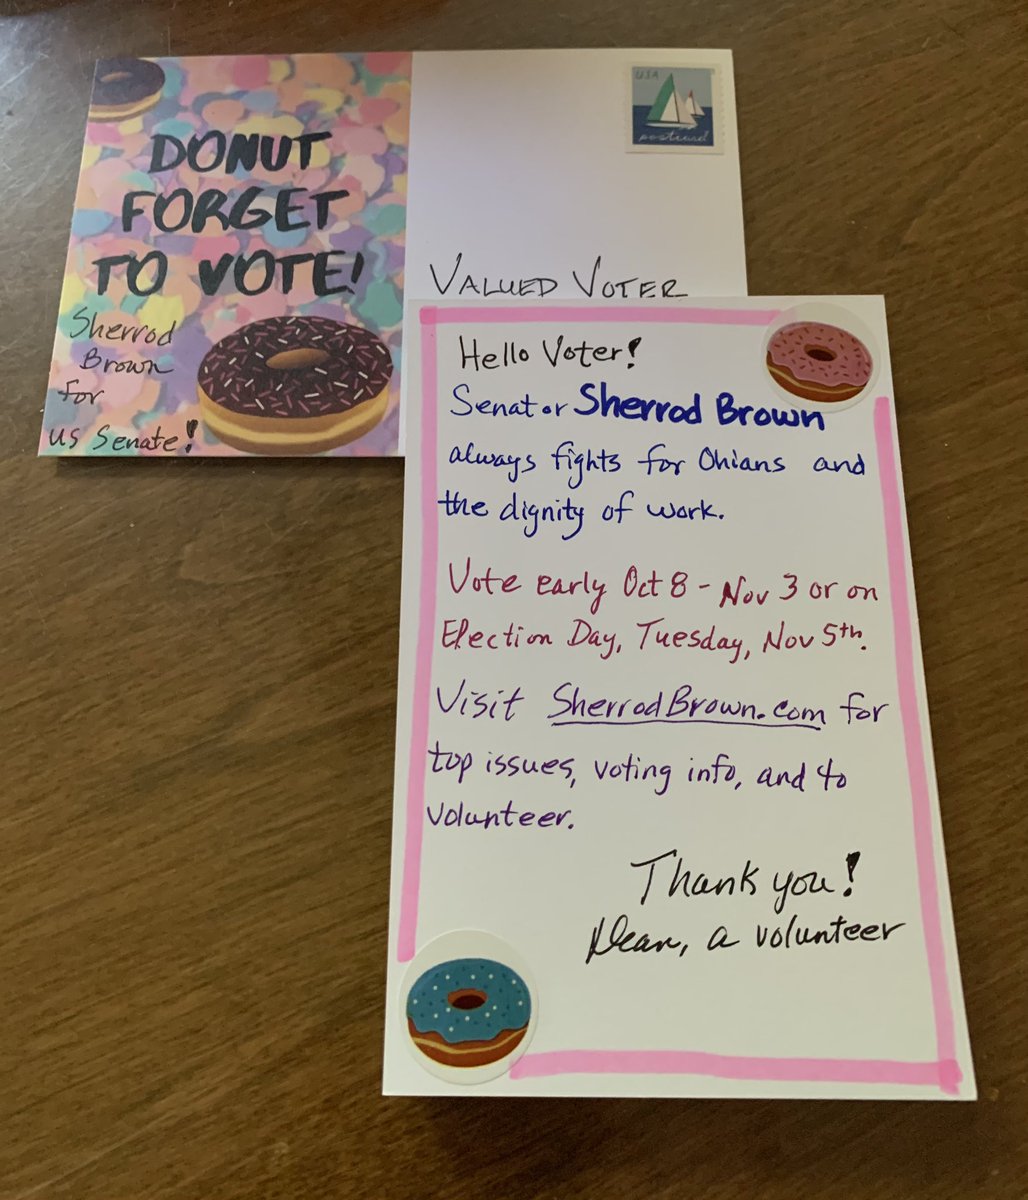 DONUT
FORGET
TO VOTE!
Sherrod
Brown
for
US Senate!
USA
postcard
VALUED VOTER
Hello Voter!
Senator Sherrod Brown
always fights for Ohians and
the dignity of work.
Vote early Oct 8 - Nov 3 or on
Election Day, Tuesday, Nov 5th.
Visit SherrodBrown.com for
top issues, voting info, and to
volunteer.
Thank you!
Dean, a volunteer